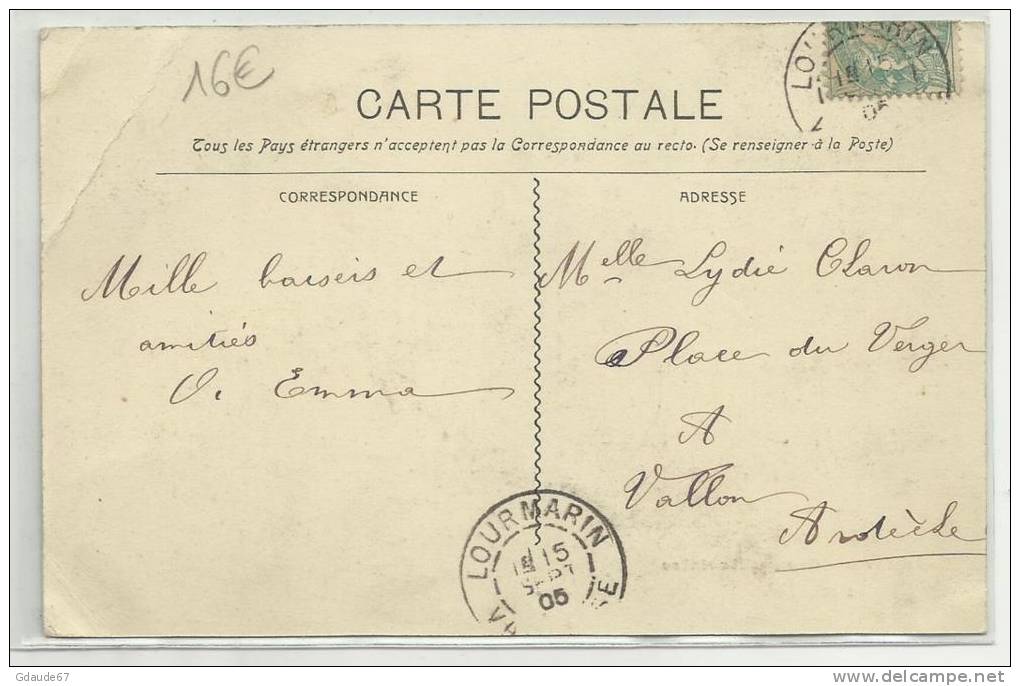 16€
LOURMARIN
05
CARTE POSTALE
Tous les Pays étrangers n'acceptent pas la Correspondance au recto. (Se renseigner à la Poste)
CORRESPONDANCE
ADRESSE
Mille baisers et
amitiés
Emma
Melle Lydie Claron
Place du Verger
A
Vallon
Ardèche
LOURMARIN
15
SEPT
05
Gdaude67
delcampe.net